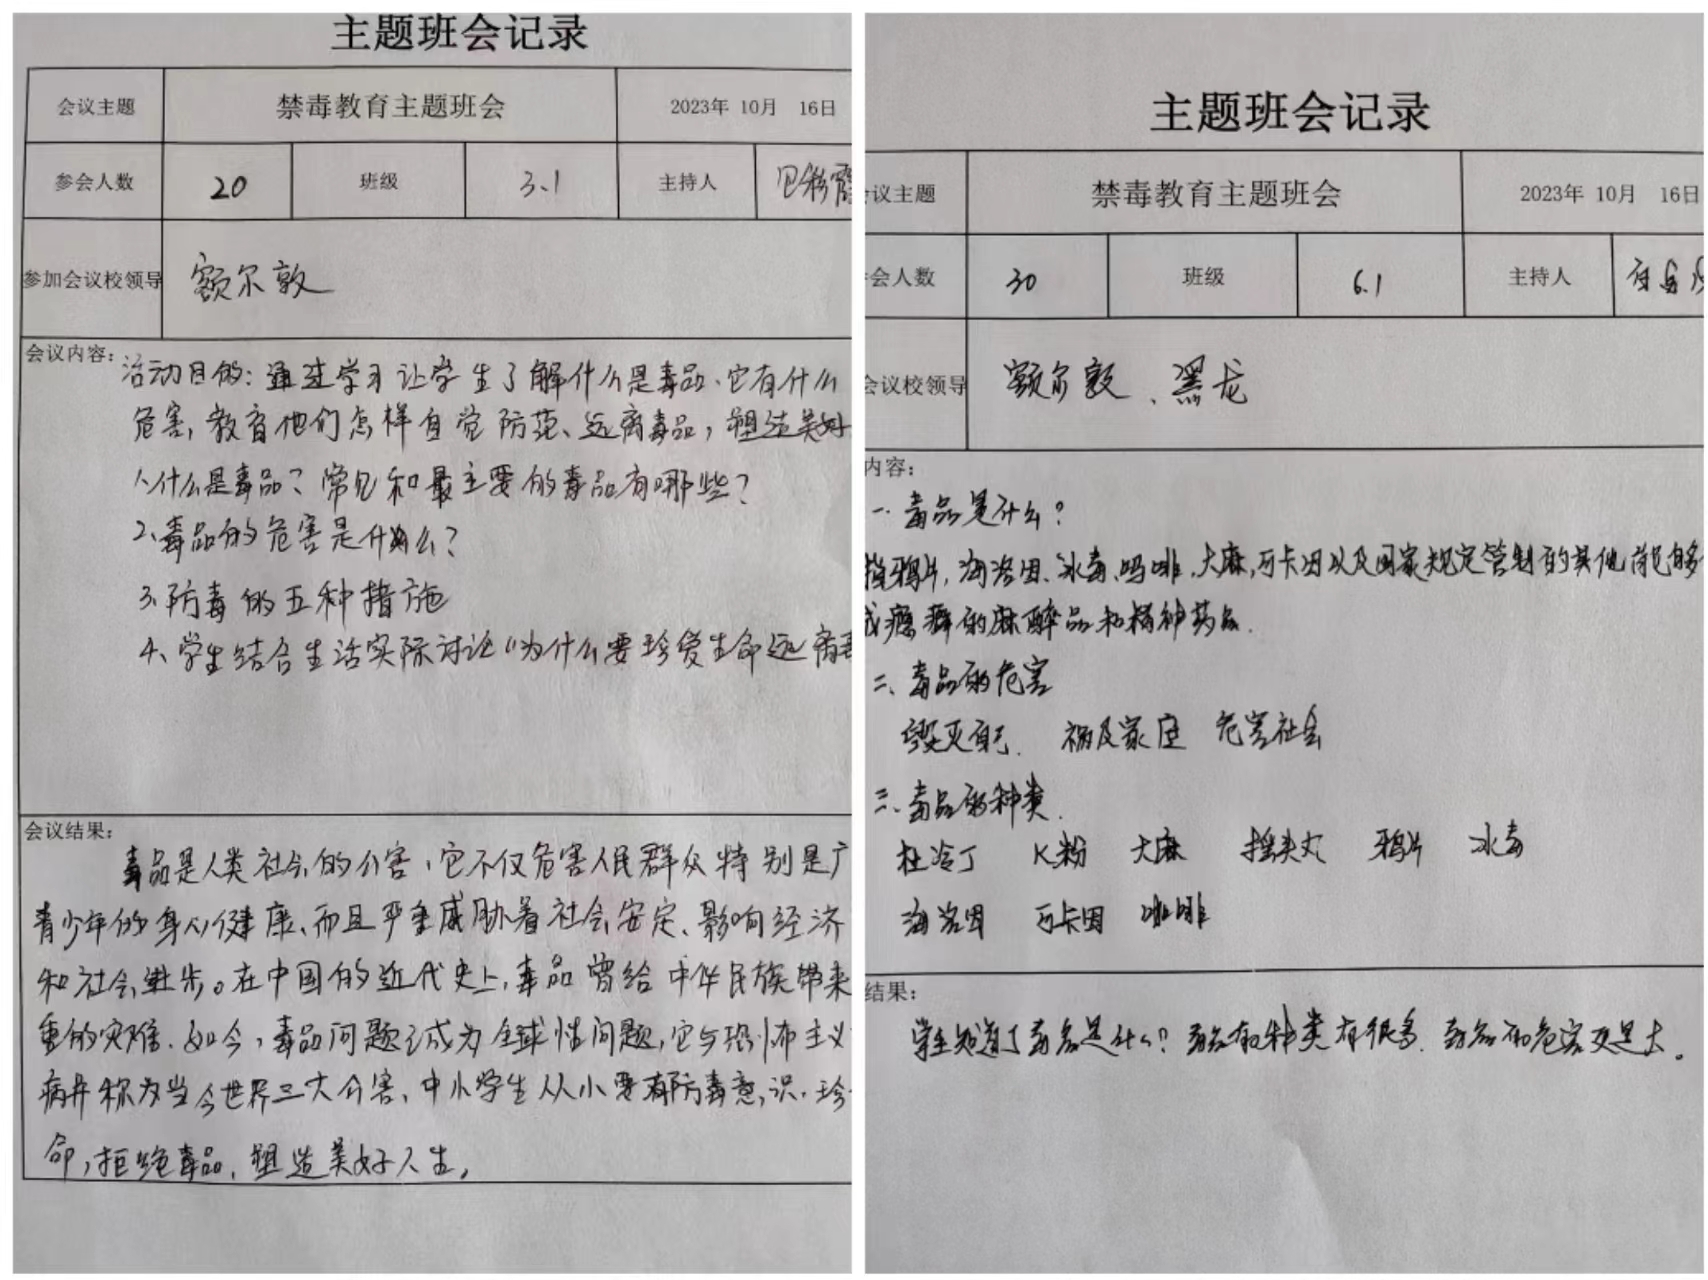 主题班会记录
会议主题 禁毒教育主题班会 2023年 10月 16日
参会人数 20 班级 3.1 主持人
参加会议校领导 额尔敦
会议内容：
活动目的：通过学习让学生了解什么是毒品、它有什么
危害，教育他们怎样自觉防范、远离毒品，塑造美好
1、什么是毒品？常见和最主要的毒品有哪些？
2、毒品的危害是什么？
3、防毒的五种措施
4、学生结合生活实际讨论“为什么要珍爱生命远离毒
会议结果：
毒品是人类社会的公害，它不仅危害人民群众特别是广
青少年的身心健康、而且严重威胁着社会安定、影响经济
和社会进步。在中国的近代史上，毒品曾给中华民族带来
重的灾难．如今，毒品问题已成为全球性问题，它与恐怖主义
病并称为当今世界三大公害、中小学生从小要有防毒意识．珍
命，拒绝毒品．塑造美好人生，
主题班会记录
议主题 禁毒教育主题班会 2023年 10月 16日
会人数 30 班级 6.1 主持人
会议校领导 额尔敦、黑龙
内容：
一．毒品是什么？
指鸦片，海洛因、冰毒、吗啡．大麻，可卡因以及国家规定管制的其他能够
成瘾癖的麻醉品和精神药品．
二、毒品的危害
毁灭自己． 祸及家庭 危害社会
三．毒品的种类．
杜冷丁 K粉 大麻 摇头丸 鸦片 冰毒
海洛因 可卡因
结果：
学生知道了毒品是什么？毒品的种类有很多．毒品的危害更是大。